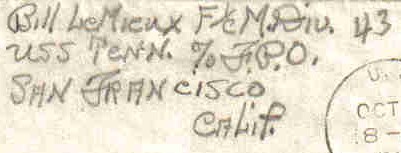 Bill LeMieux F&M. Div. 43
USS TENN. % F.P.O.
SAN FRANCISCO
CALIF.
U.
OCT
8-